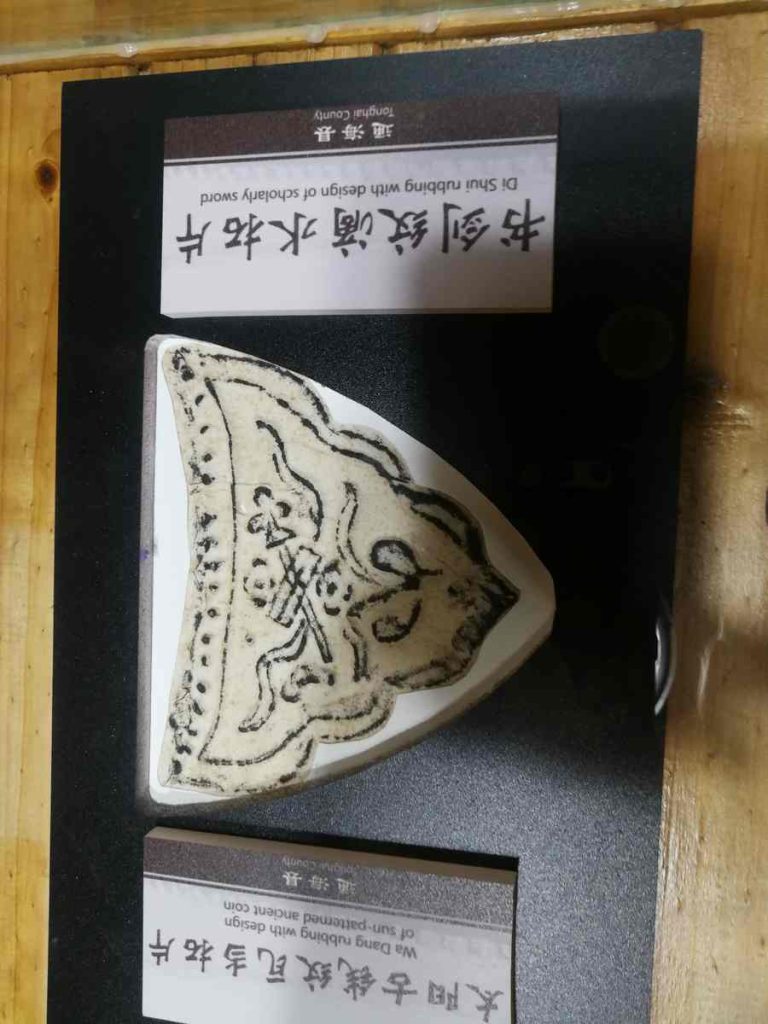 太阳古钱纹瓦当拓片
Wa Dang rubbing with design
of sun-patterned ancient coin
通海县
Tonghai County
书剑纹滴水拓片
Di Shui rubbing with design of scholarly sword
通海县
Tonghai County